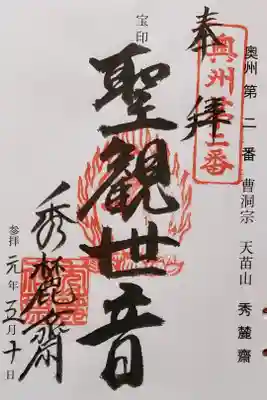 奥州第二番 曹洞宗 天苗山 秀麓齋
奥州第二番
奉拝
宝印
聖観世音
秀麓齋
参拝 元年五月十日